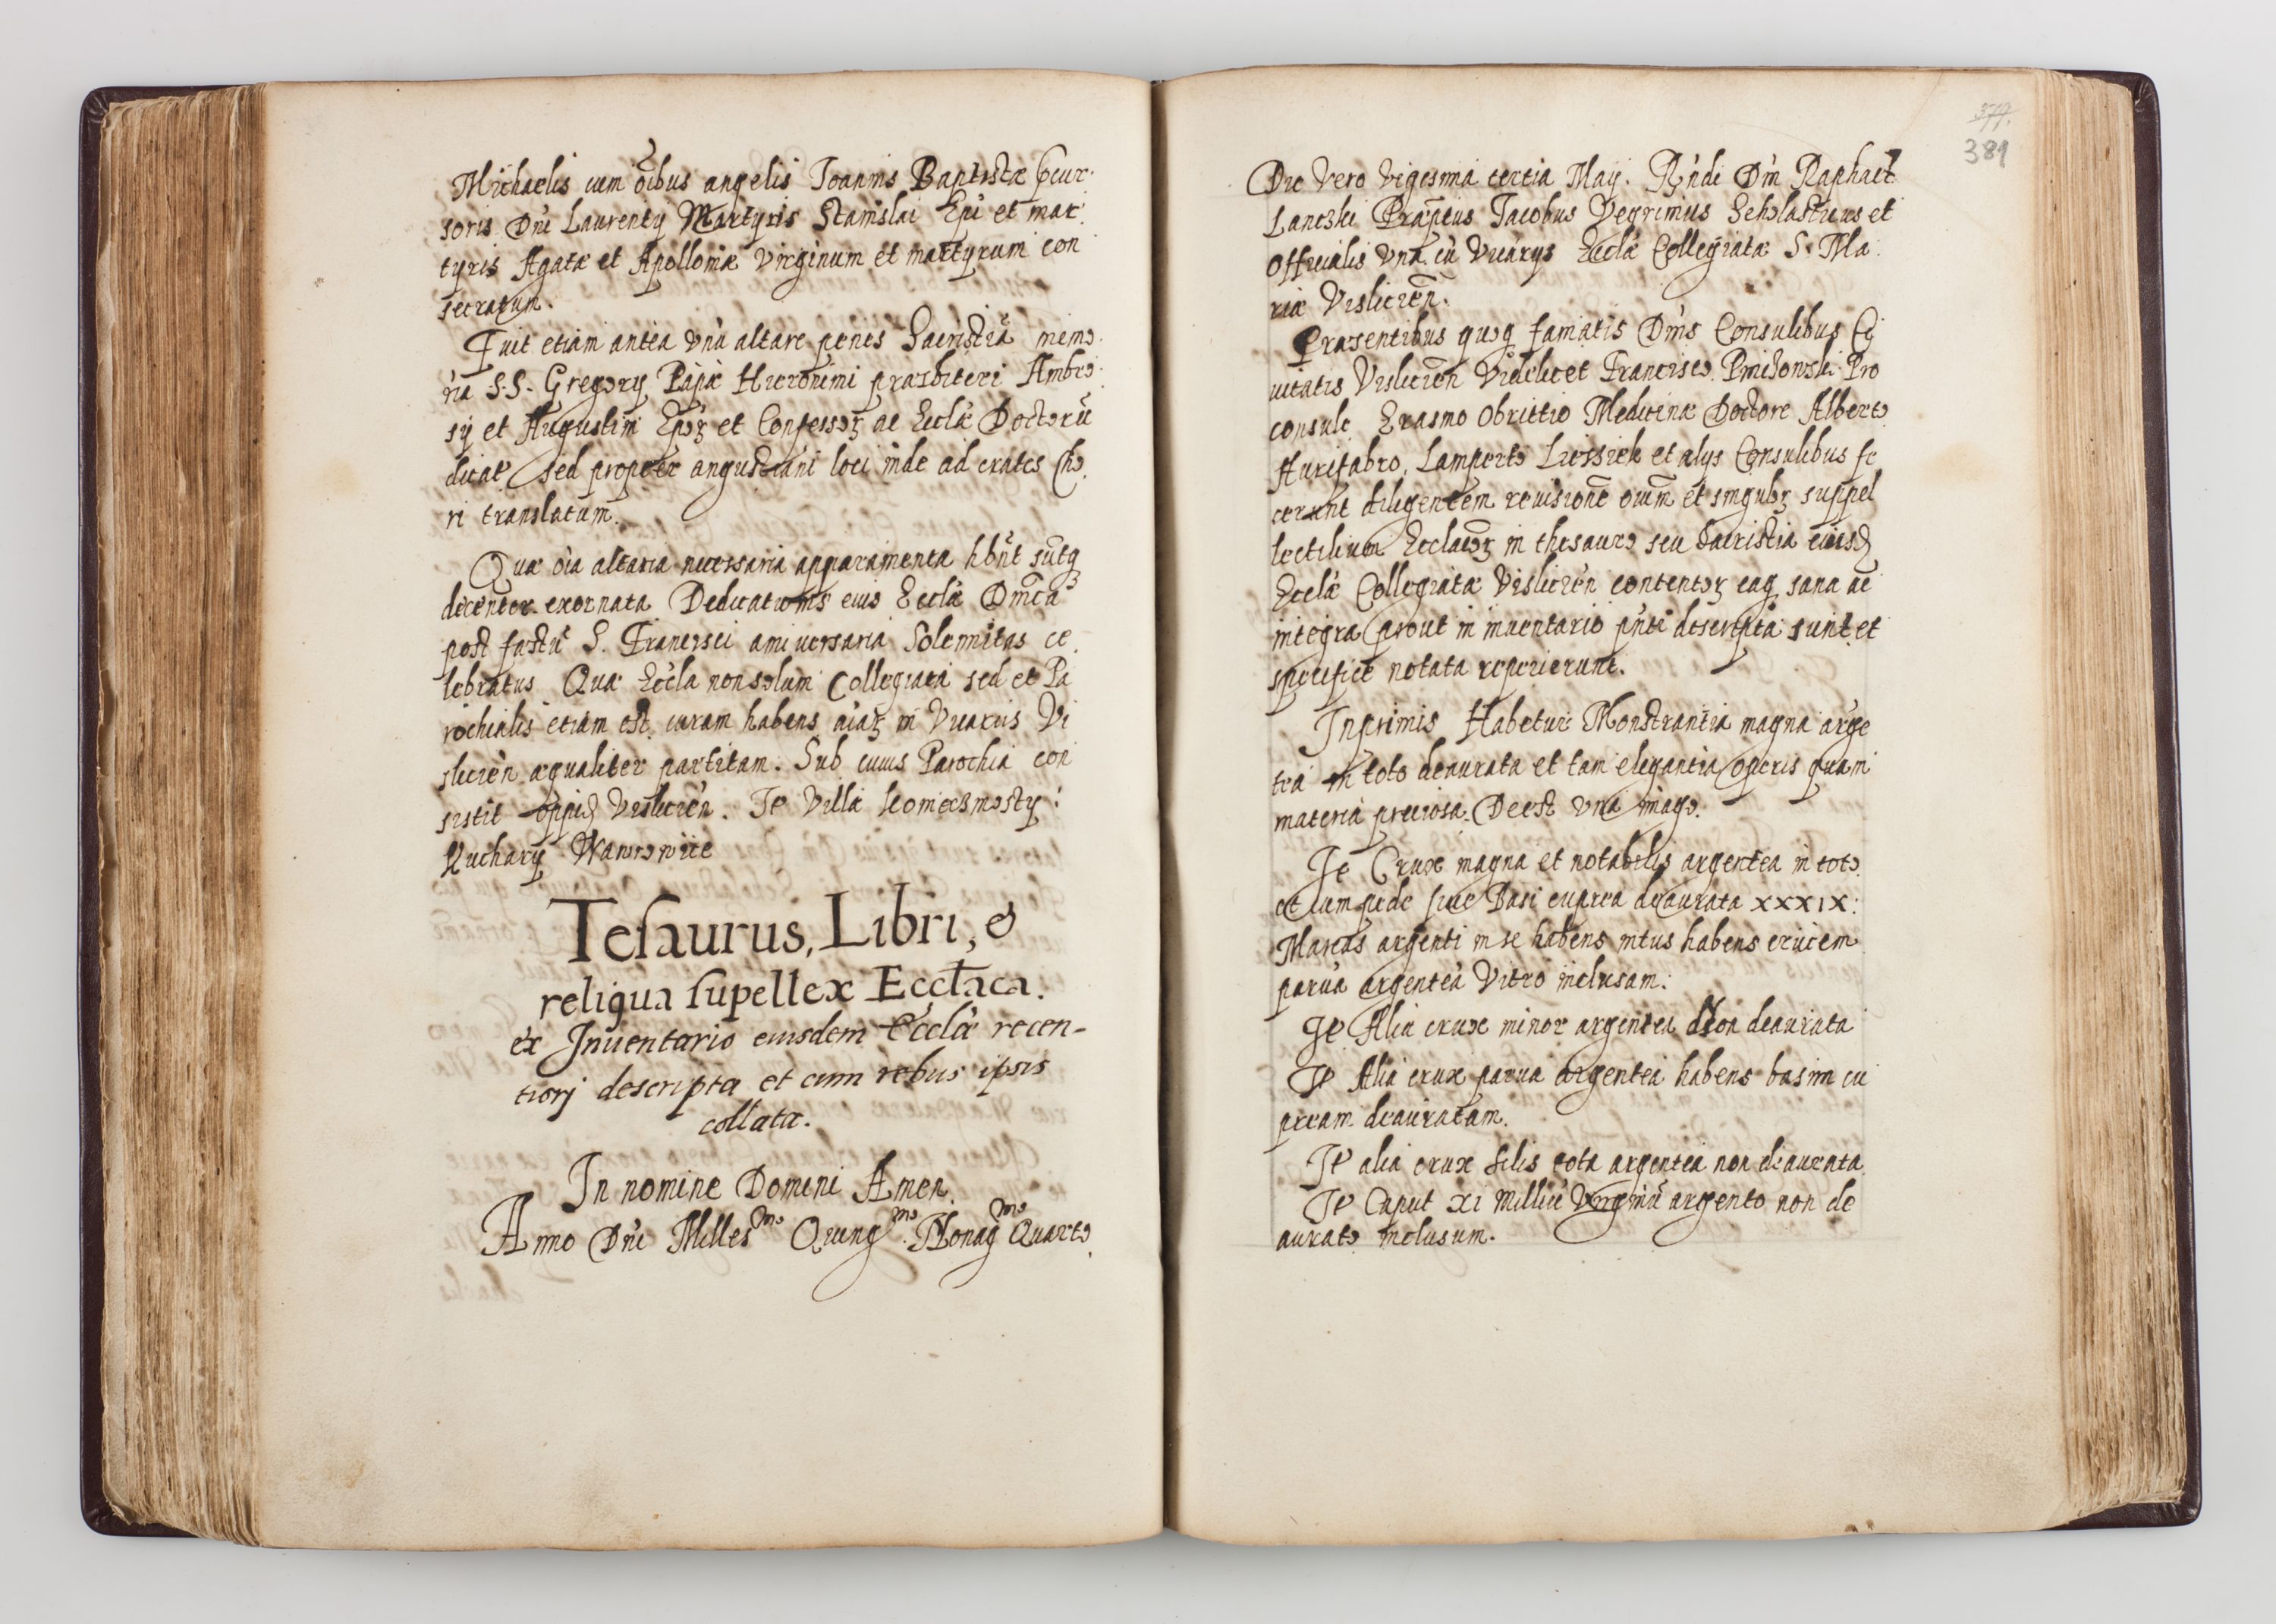 Michaelis cum oĩbus angelis Joannis Baptistæ precur.
soris Dñi Laurentÿ Martyris Stanislai Epi et mar.
tyris Agatæ et Apolloniæ virginum et martyrum con
secratum.
Fuit etiam antea unũ altare penes Sacristiã memo.
ria S.S. Gregorÿ Papæ Hieronimi præsbiteri Ambro.
sÿ et Augustini Epoꝝ et Confessoꝝ ac Ecclæ Doctorũ
dicat sed propter angustiam loci inde ad crates Cho
ri translatum.
Quæ oĩa altaria necessaria apparamenta hbñt suntq
decenter exornata Dedicationis eius Ecclæ Dñica
post festũ S. Francisci anniversaria Solennitas ce
lebratus Quæ Eccla non solum Collegiata sed et Pa
rochialis etiam est curam habens aĩaꝝ in Vicariis Vi
slicien æqualiter partitam. Sub cuius Parochia con
sistit oppid Vislicien. It Villæ
Kuchary Wawrowice
Tesaurus, Libri, &
reliqua supellex Eccl̃aca.
ex Inuentario eiusdem Ecclæ recen-
tiorj descripta et cum rebus ipsis
collata.
In nomine Domini Amen.
Anno Dñi Milles^mo Quing^mo Nonag^mo Quarto
379.
381
Die Vero Vigesima tertia Maÿ. Rñdi Dñi Raphael
Lanczki Præptus Jacobus Vegrinius Scholasticus et
Officialis una cũ Vicarÿs Ecclæ Collegiatæ S. Ma
riæ Vislicien.
Præsentibus quoq famatis Dñis Consulibus Ci
uitatis Vislicien Videlicet Francisco Pro
consule Erasmo Obrittio Medicinæ Doctore Alberto
Aurifabro, Lamperto et alÿs Consulibus fe
cerunt diligentem reuisionẽ oium et singuloꝝ suppel
lectilium Ecclacoꝝ in thesauro seu Sacristia eiusd
Ecclæ Collegiatæ Vislicien contentoꝝ eaq sana ac
integra prout in inuentario pñti descripta sunt et
specifice notata reperierunt.
Inprimis Habetur Monstrantia magna arge
tea in toto deaurata et tam elegantia operis quam
materia preciosa. Deest una imago.
It Crux magna et notabilis argentea in toto
et cum pede siue Basi cuprea deaurata xxxix:
Marcas argenti in se habens intus habens crucem
paruã argenteã Vitro inclusam.
It Alia crux minor argentea non deaurata
It Alia crux parua argentea habens basim cu
pream deauratam.
It alia crux silis tota argentea non deaurata
It Caput xi milliũ Virginũ argento non de
aurato inclusum.